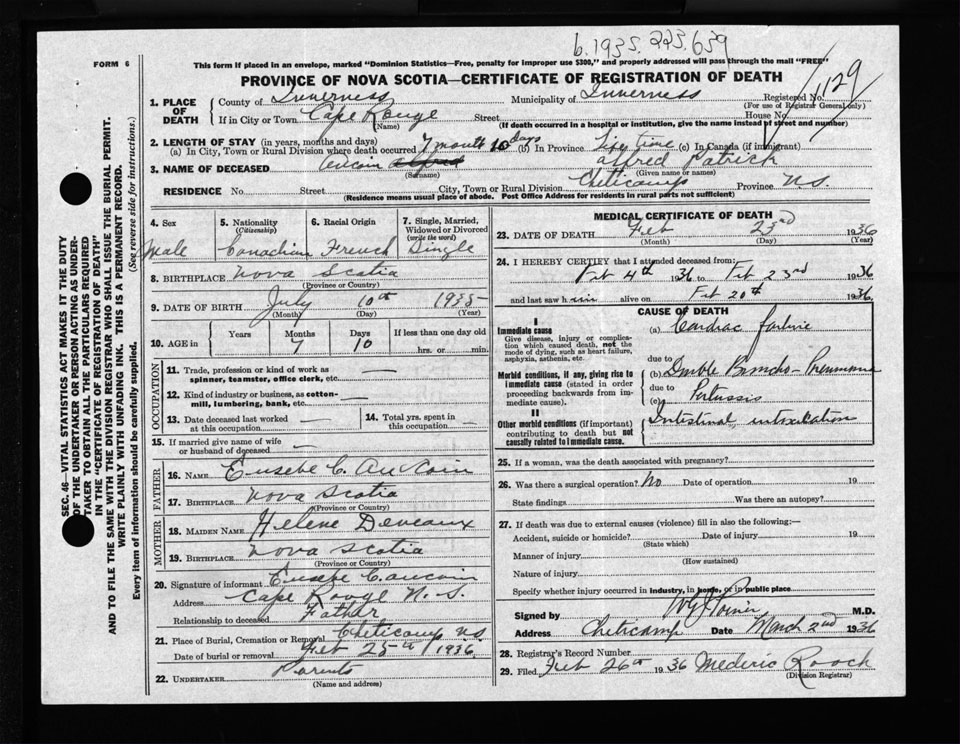 b.1935.223.639
FORM 6
This form if placed in an envelope, marked "Dominion Statistics—Free, penalty for improper use $300," and properly addressed will pass through the mail "FREE"
PROVINCE OF NOVA SCOTIA—CERTIFICATE OF REGISTRATION OF DEATH
1129
1. PLACE OF DEATH County of Inverness Municipality of Inverness Registered No. (For use of Registrar General only)
If in City or Town Cape Rouge (Name) Street House No.
(If death occurred in a hospital or institution, give the name instead of street and number)
2. LENGTH OF STAY (in years, months and days)
(a) In City, Town or Rural Division where death occurred 7 month 10 days (b) In Province Life time (c) In Canada (if immigrant)
3. NAME OF DECEASED Aucoin Alfred (Surname) Alfred Patrick (Given name or names)
RESIDENCE No. Street City, Town or Rural Division Cheticamp Province N.S.
(Residence means usual place of abode. Post Office Address for residents in rural parts not sufficient)
4. Sex Male
5. Nationality (Citizenship) Canadian
6. Racial Origin French
7. Single, Married, Widowed or Divorced (write the word) Single
8. BIRTHPLACE Nova Scotia
(Province or Country)
9. DATE OF BIRTH July 10th 1935
(Month) (Day) (Year)
10. AGE in Years Months 7 Days 10 If less than one day old hrs. or min.
OCCUPATION
11. Trade, profession or kind of work as spinner, teamster, office clerk, etc. —
12. Kind of industry or business, as cotton-mill, lumbering, bank, etc. —
13. Date deceased last worked at this occupation —
14. Total yrs. spent in this occupation —
15. If married give name of wife or husband of deceased —
FATHER
16. NAME Eusebe C. Aucoin
17. BIRTHPLACE Nova Scotia
(Province or Country)
MOTHER
18. MAIDEN NAME Helene Deveaux
19. BIRTHPLACE Nova Scotia
(Province or Country)
20. Signature of informant Eusebe C. Aucoin
Address Cape Rouge N.S.
Relationship to deceased Father
21. Place of Burial, Cremation or Removal Cheticamp N.S.
Date of burial or removal Feb 25th 1936
22. UNDERTAKER Parents
(Name and address)
MEDICAL CERTIFICATE OF DEATH
23. DATE OF DEATH Feb 23rd 1936
(Month) (Day) (Year)
24. I HEREBY CERTIFY that I attended deceased from:
Feb 4th 1936 to Feb 23rd 1936
and last saw him alive on Feb 20th 1936
CAUSE OF DEATH
I
Immediate cause
Give disease, injury or complication which caused death, not the mode of dying, such as heart failure, asphyxia, asthenia, etc.
(a) Cardiac failure
due to
Morbid conditions, if any, giving rise to immediate cause (stated in order proceeding backwards from immediate cause).
(b) Double Broncho-Pneumonia
due to
(c) Pertussis
II
Other morbid conditions (if important) contributing to death but not causally related to immediate cause.
Intestinal intoxication
25. If a woman, was the death associated with pregnancy?
26. Was there a surgical operation? No Date of operation 19
State findings Was there an autopsy?
27. If death was due to external causes (violence) fill in also the following:—
Accident, suicide or homicide? Date of injury 19
(State which)
Manner of injury
(How sustained)
Nature of injury
Specify whether injury occurred in Industry, in home, or in public place
Signed by M.D.
Address Cheticamp Date March 2nd 1936
28. Registrar's Record Number
29. Filed Feb 26th 1936 Mederic Roach
(Division Registrar)
SEC. 46—VITAL STATISTICS ACT MAKES IT THE DUTY
OF THE UNDERTAKER OR PERSON ACTING AS UNDER-
TAKER TO OBTAIN ALL THE PARTICULARS REQUIRED
IN THE "CERTIFICATE OF REGISTRATION OF DEATH"
AND TO FILE THE SAME WITH THE DIVISION REGISTRAR WHO SHALL ISSUE THE BURIAL PERMIT.
WRITE PLAINLY WITH UNFADING INK. THIS IS A PERMANENT RECORD.
Every item of information should be carefully supplied. (See reverse side for instructions.)